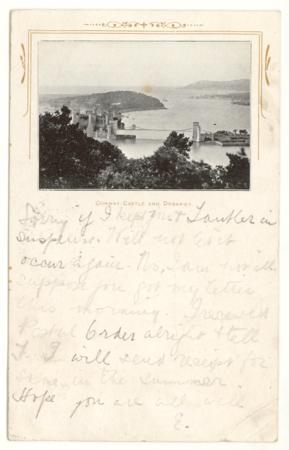 CONWAY CASTLE AND DEGANWY
Sorry if I kept Mr Lantler in
suspense. Will not let it
occur again. No, I am not ill
suppose you got my letter
this morning. I received
Postal Order alright & tell
F. I will send receipt for
same, in the summer.
Hope you are all well
E.